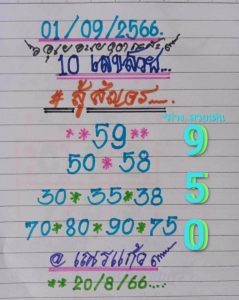 01/09/2566.
10 เลขสวย...
# สู้สัญจร......
**59**
50*58
30*35*38
70*80*90*75
@ เณรแก้ว
**20/8/66....
9
5
0